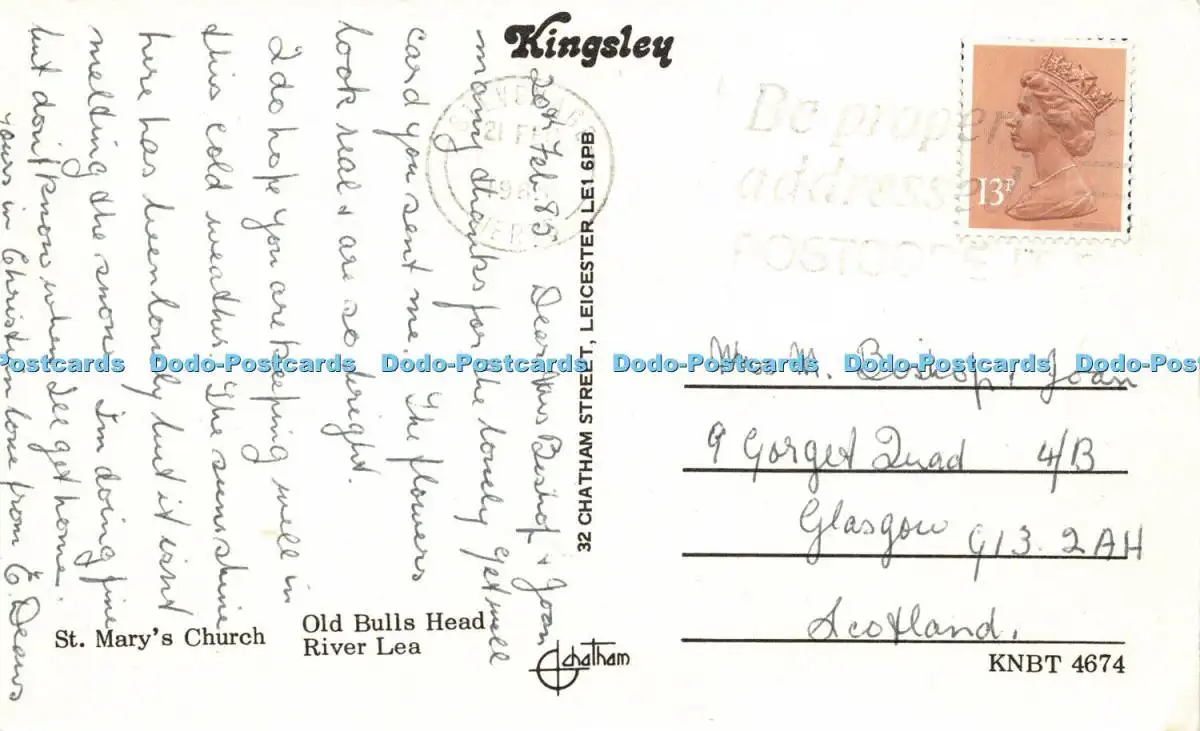 Kingsley
20th Feb. 85 Dear Mrs Bishop & Joan
many thanks for the lovely get well
card you sent me. The flowers
look real & are so bright.
I do hope you are keeping well in
this cold weather. The sunshine
here has been lovely but it isnt
melting the snow. I'm doing fine
but don't know when I'll get home.
yours in Christian love from E. Deans
St. Mary's Church
Old Bulls Head
River Lea
32 CHATHAM STREET, LEICESTER, LE1 6PB
chatham
STEVENAGE
21 FEB
HERTS
Be properly
addressed
POSTCODE
13P
Mrs M. Bishop, Joan
9 Gorget Quad 4/B
Glasgow G13. 2AH
Scotland.
KNBT 4674
Dodo-Postcards Dodo-Postcards Dodo-Postcards Dodo-Postcards Dodo-Postcards Dodo-Postcards